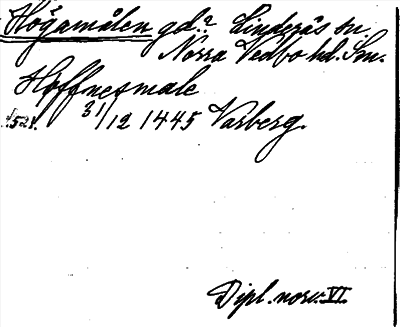 Högamålen gd.a Linderås sn.
Norra Vedbo hd. Sm.
Hoffnesmale
s. 521. 31/12 1445 Varberg.
Dipl. norv. VI.